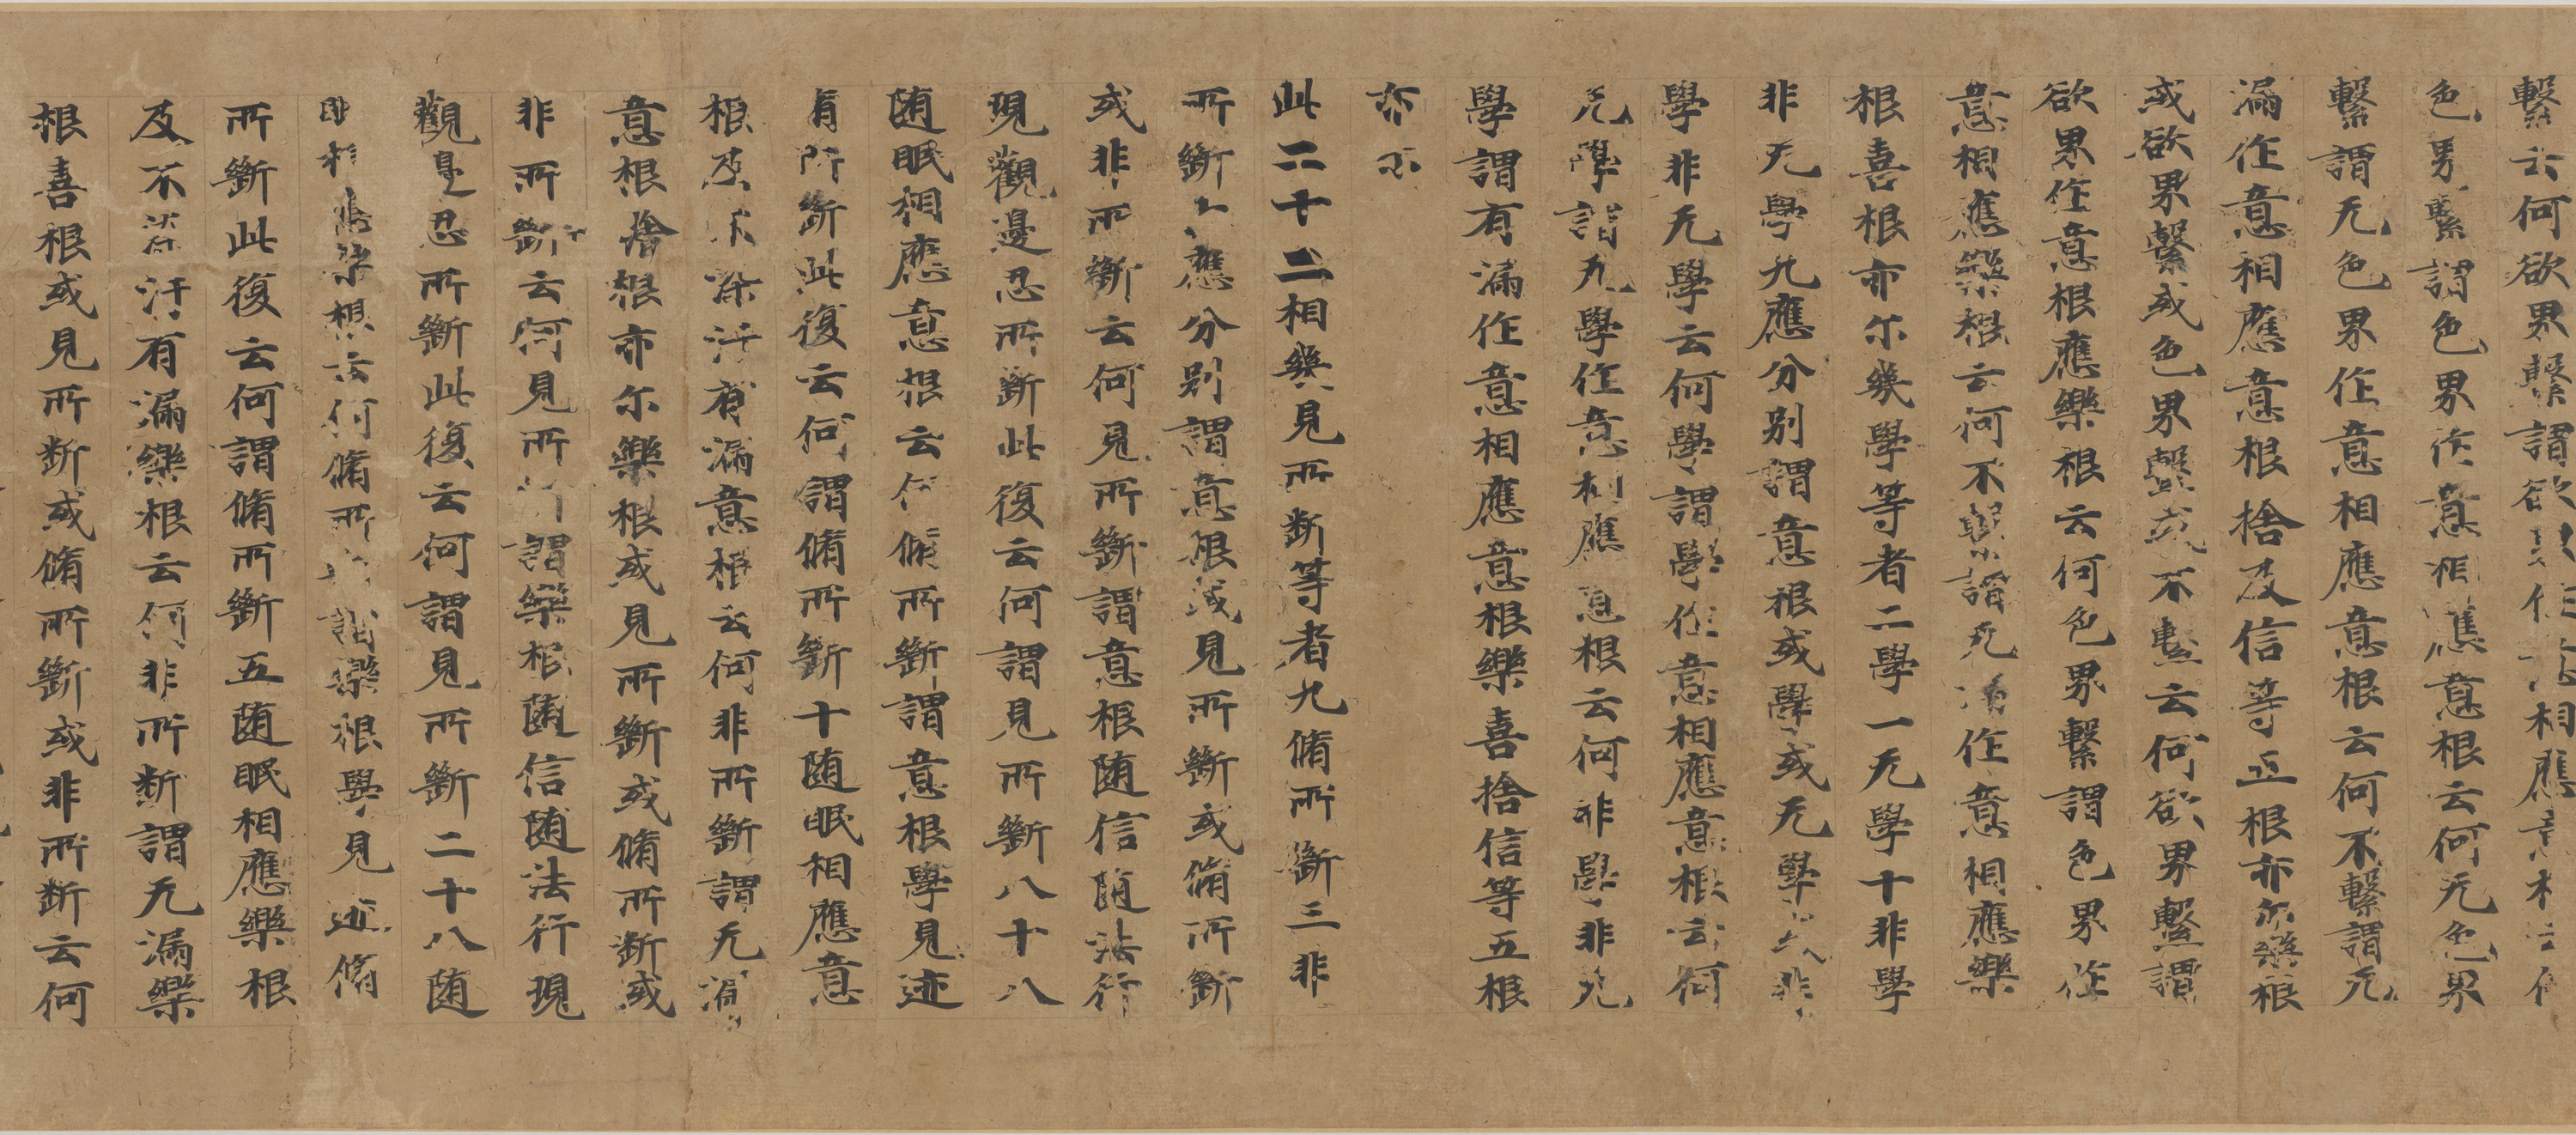 繫云何欲界繫謂欲界作意相應意根云何
色界繫謂色界作意相應意根云何无色界
繫謂无色界作意相應意根云何不繫謂无
漏作意相應意根捨及信等五根亦尓樂根
或欲界繫或色界繫或不繫云何欲界繫謂
欲界作意根應樂根云何色界繫謂色界作
意相應樂根云何不繫謂无漏作意相應樂
根喜根亦尓幾學等者二學一无學十非學
非无學九應分別謂意根或學或无學或非
學非无學云何學謂學作意相應意根云何
无學謂无學作意相應意根云何非學非无
學謂有漏作意相應意根樂喜捨信等五根
亦尓
此二十二相幾見所断等者九脩所斷三非
所斷十應分別謂意根或見所斷或脩所斷
或非所斷云何見所斷謂意根随信随法行
現觀邊忍所斷此復云何謂見所斷八十八
随眠相應意根云何脩所斷謂意根學見迹
脩所斷此復云何謂脩所斷十随眠相應意
根及不染汙有漏意根云何非所斷謂无漏
意根捨根亦尓樂根或見所斷或脩所断或
非所斷云何見所斷謂樂根随信随法行現
觀邊忍所斷此復云何謂見所斷二十八随
眠相應樂根云何脩所斷謂樂根學見迹脩
所斷此復云何謂脩所斷五随眠相應樂根
及不染汙有漏樂根云何非所断謂无漏樂
根喜根或見所断或脩所斷或非所断云何